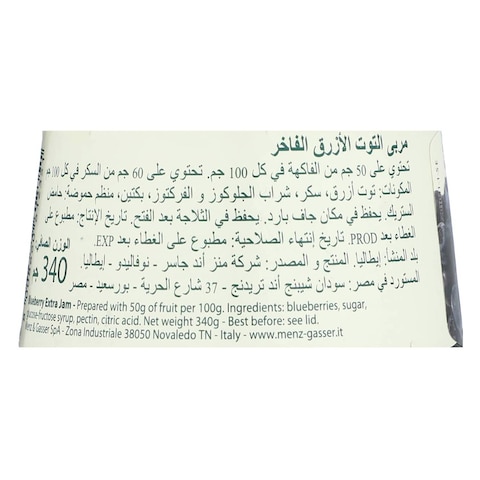 مربى التوت الأزرق الفاخر
تحتوي على 50 جم من الفاكهة في كل 100 جم. تحتوي على 60 جم من السكر في كل 100 جم
المكونات: توت أزرق، سكر، شراب الجلوكوز و الفركتوز، بكتين، منظم حموضة: حامض
الستريك. يحفظ في مكان جاف بارد. يحفظ في الثلاجة بعد الفتح. تاريخ الإنتاج: مطبوع على
الغطاء بعد PROD. تاريخ إنتهاء الصلاحية: مطبوع على الغطاء بعد EXP.
بلد المنشأ: إيطاليا. المنتج و المصدر: شركة منز أند جاسر - نوفاليدو - إيطاليا.
المستورد في مصر: سودان شيبينج أند تريدنج - 37 شارع الحرية - بورسعيد - مصر
الوزن الصافي
340 جم
Blueberry Extra Jam - Prepared with 50g of fruit per 100g. Ingredients: blueberries, sugar,
glucose-fructose syrup, pectin, citric acid. Net weight 340g - Best before: see lid.
Menz & Gasser SpA - Zona Industriale 38050 Novaledo TN - Italy - www.menz-gasser.it